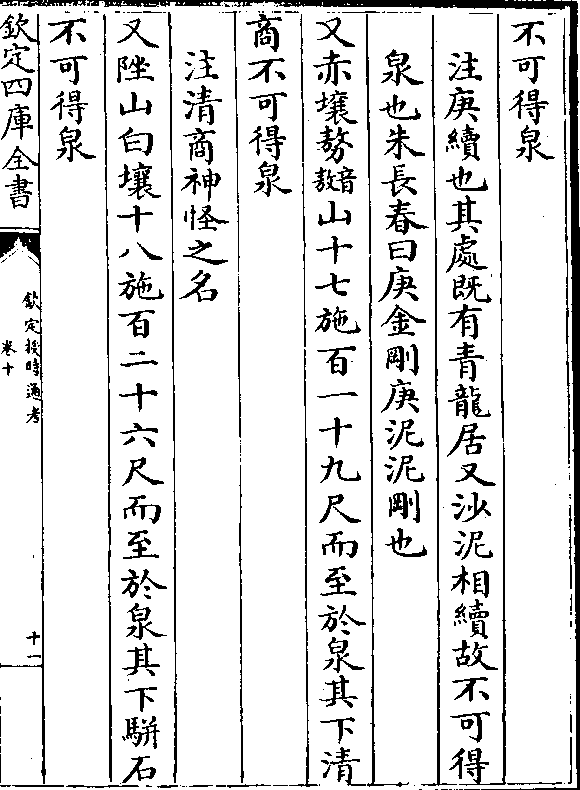 不可得泉
注庚續也其處既有青龍居又沙泥相續故不可得
泉也朱長春曰庚金剛庚泥泥剛也
又赤壤䃜音敖山十七施百一十九尺而至於泉其下清
商不可得泉
注清商神怪之名
又陛山白壤十八施百二十六尺而至於泉其下駢石
不可得泉
欽定四庫全書
欽定授時通考
卷十
十一